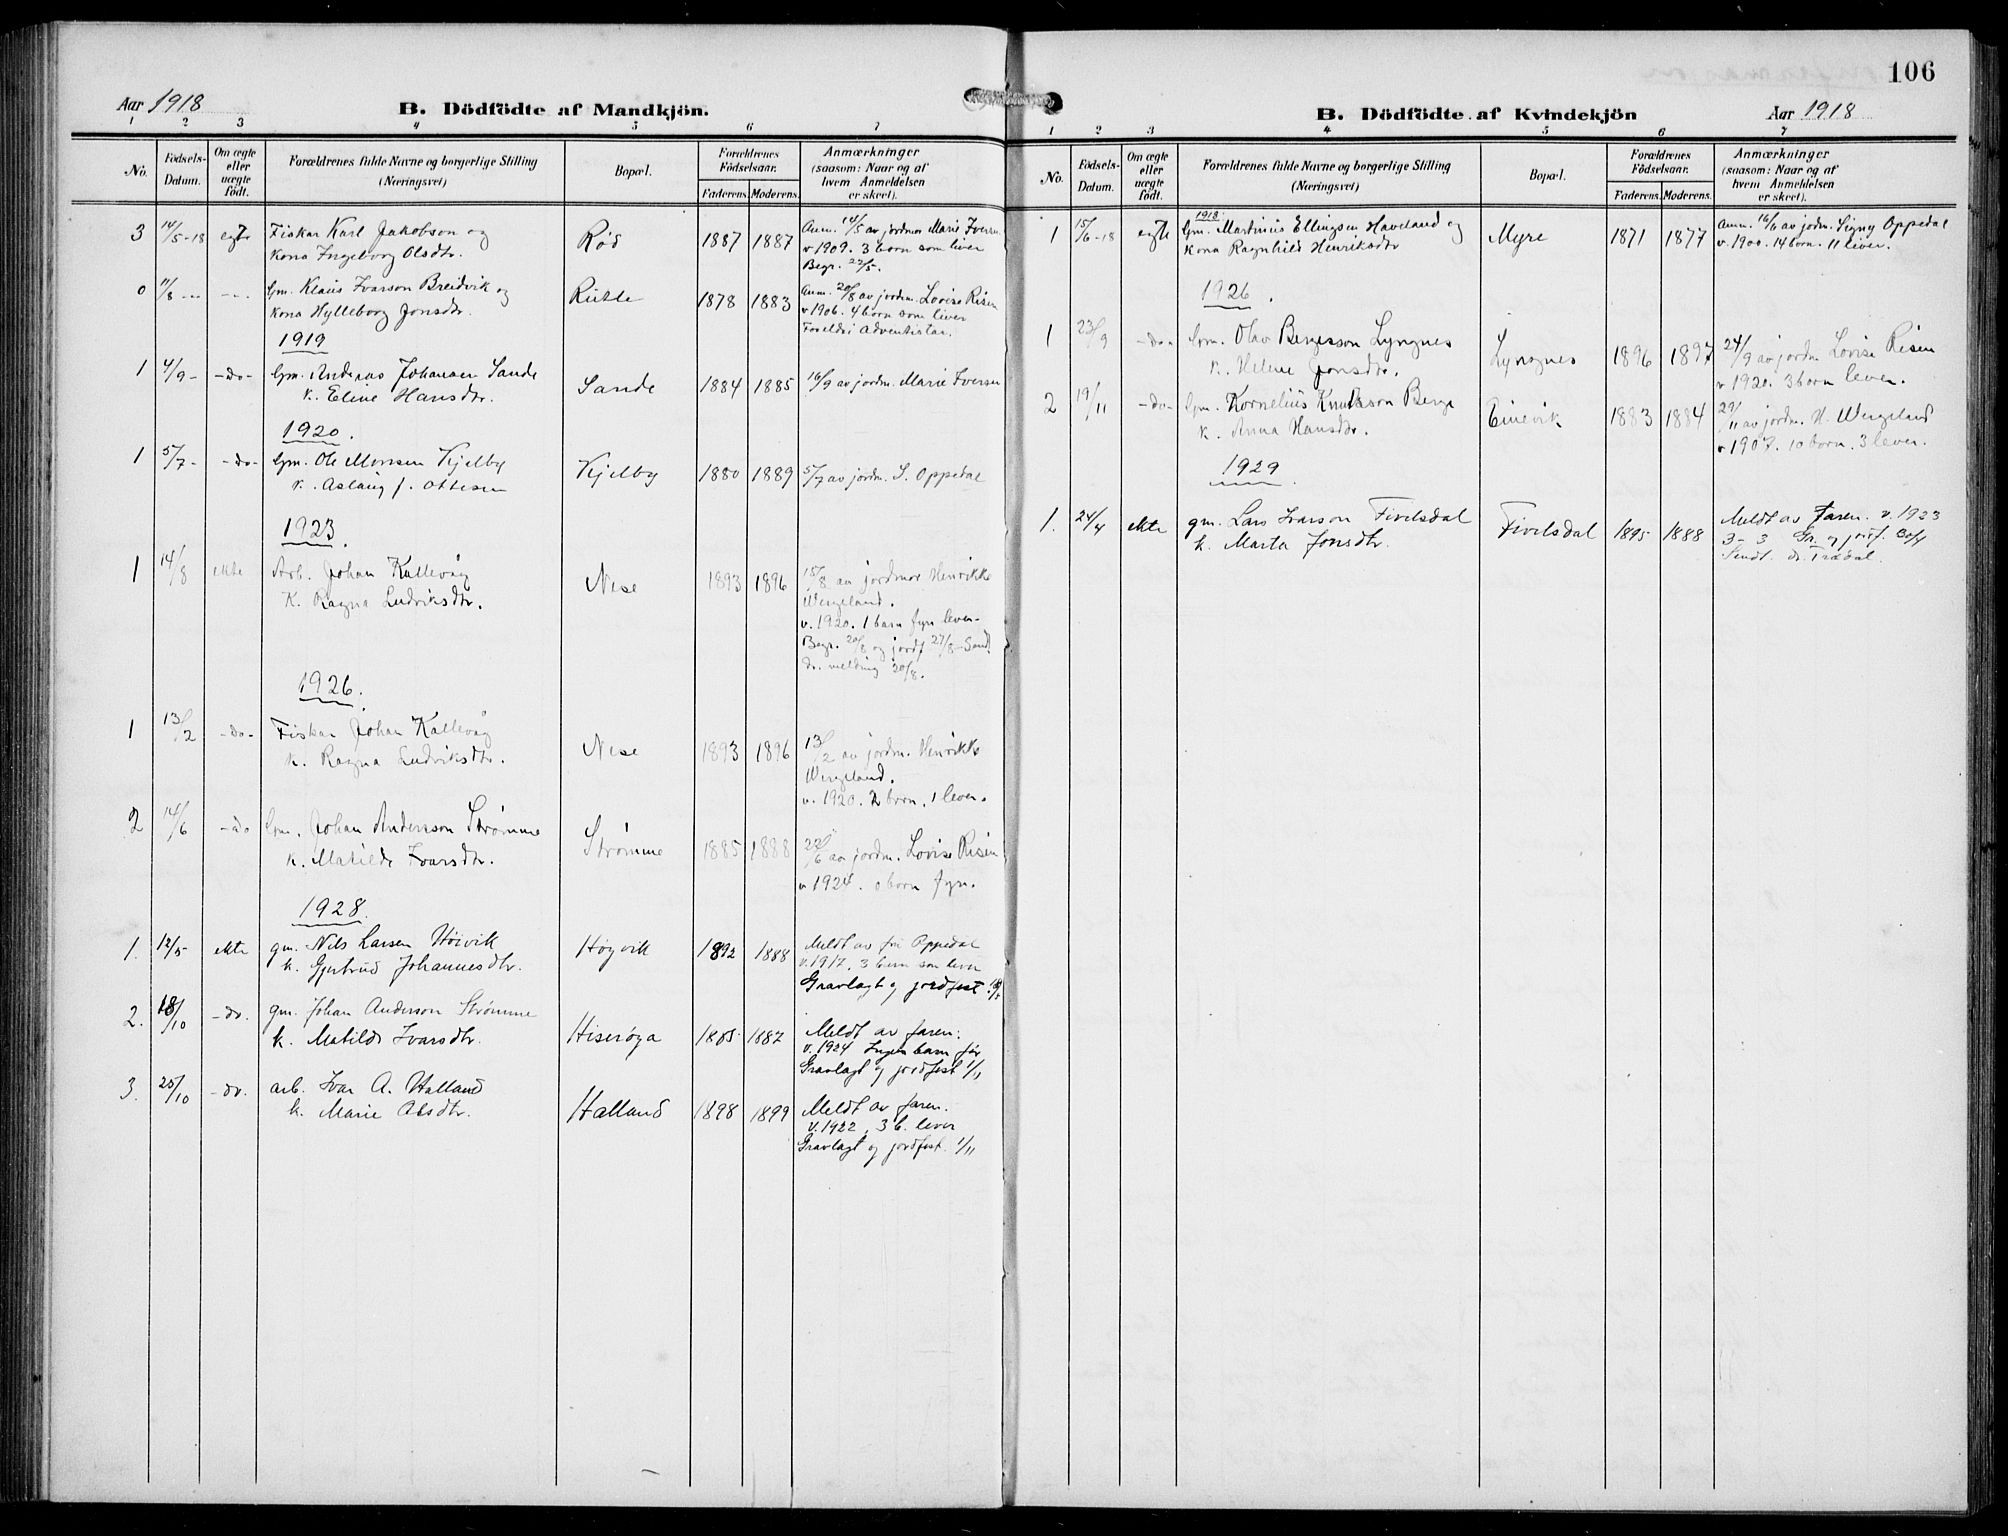 Aar 1918
B. Dödfödte af Mandkjön.
1 2 3 4 5 6 7
No. Födsels-Datum. Om ægte eller uægte födt. Forældrenes fulde Navne og borgerlige Stilling (Næringsvei) Bopæl. Forældrenes Födselsaar. Faderens. Moderens. Anmærkninger (saasom: Naar og af hvem Anmeldelsen er skeet).
3 14/5-18 egte Fiskar Karl Jakobson og Rød 1887 1887 Anm. 14/5 av jordmor Marie Iversen
kona Ingeborg Olsdtr. v 1909. 3 born som liver
Begr. 22/5.
0 11/8 - - - - - Gm. Klaus Ivarson Breidvik og Rutle 1878 1883 Anm. 20/8 av jordm. Lovise Risen
kona Hylleborg Jonsdtr. v 1906. 4 born som liver
Foreldri Adventistar.
1919
1 4/9 - -do- Gm. Andreas Johansen Sande Sande 1884 1885 16/9 av jordm. Marie Iversen
k. Eline Hansdtr.
1920.
1 5/7- -do- Gm. Ole Monsen Kjelby Kjelby 1880 1889 5/7 av jordm. S. Oppedal
k. Aslaug f. Ottesen
1923.
1 14/8 ekte Arb. Johan Kallevåg Nese 1893 1896 15/8 av jordmor Henrikke
K. Ragna Ludviksdtr. Wergeland.
v. 1920. 1 barn fyrr lever.
Begr. 20/8 og jordf 27/8 - Send
dr. melding 20/8.
1926.
1 13/2 -do- Fiskar Johan Kallevåg Nese 1893 1896 13/2 av jordm. Henrikke
k. Ragna Ludviksdtr. Wergeland.
v. 1920. 2 born. 1 lever.
2 14/6 -do Gm. Johan Andersson Strømme Strømme 1885 1888 22/6 av jordm. Lovise Risen
k. Matilde Ivarsdtr. v 1924. 0 born fyrr.
1928.
1. 12/5 ekte gm. Nils Larsen Høivik Høyvik 1892 1888 Meldt av frk Oppedal
k. Gjertrud Johannesdtr. v. 1917. 3 born som lever
Gravlagt og jordfest
2. 18/10 -do. gm. Johan Anderson Strømme Hiserøya 1885 1887 Meldt av faren.
k. Matilde Ivarsdtr. v. 1924 Ingen barn før
Gravlagt og jordfest 1/11
3. 25/10 -do. arb. Ivar A. Halland Halland 1898 1899 Meldt av faren.
k. Marie Olsdtr. v. 1922, 3 b. lever
Gravlagt og jordfest. 1/11
106
B. Dödfödte af Kvindekjön
Aar 1918
1 2 3 4 5 6 7
No. Födsels-Datum. Om ægte eller uægte födt. Forældrenes fulde Navne og borgerlige Stilling (Næringsvei) Bopæl. Forældrenes Födselsaar. Faderens. Moderens. Anmærkninger (saasom: Naar og af hvem Anmeldelsen er skeet).
1918
1 15/6-18 egte Gm. Martinius Ellingsen Haveland og Myre 1871 1877 Anm. 16/6 av jordm. Signy Oppedal
kona Ragnhild Henriksdtr v. 1900. 14 born. 11 liver.
1926.
1 23/9 -do- Gm. Olav Bergesson Lyngnes Lyngnes 1896 1897 24/9 av jordm. Lovise Risen
k. Helene Jonsdtr. v 1920. 3 born lever.
2 19/11 -do- Gm. Kornelius Knutsson Berge Einevik 1883 1884 29/11 av jordm. H. Wergeland
k. Anna Hansdtr. v 1907. 10 born. 3 lever.
1929.
1. 24/4 ekte gm. Lars Ivarson Fivelsdal Fivelsdal 1895 1888 Meldt av faren. v. 1923
k. Marta Jonsdtr. 3-3 Gr. og jordf. 30/4
Sendt dr. Trædal.